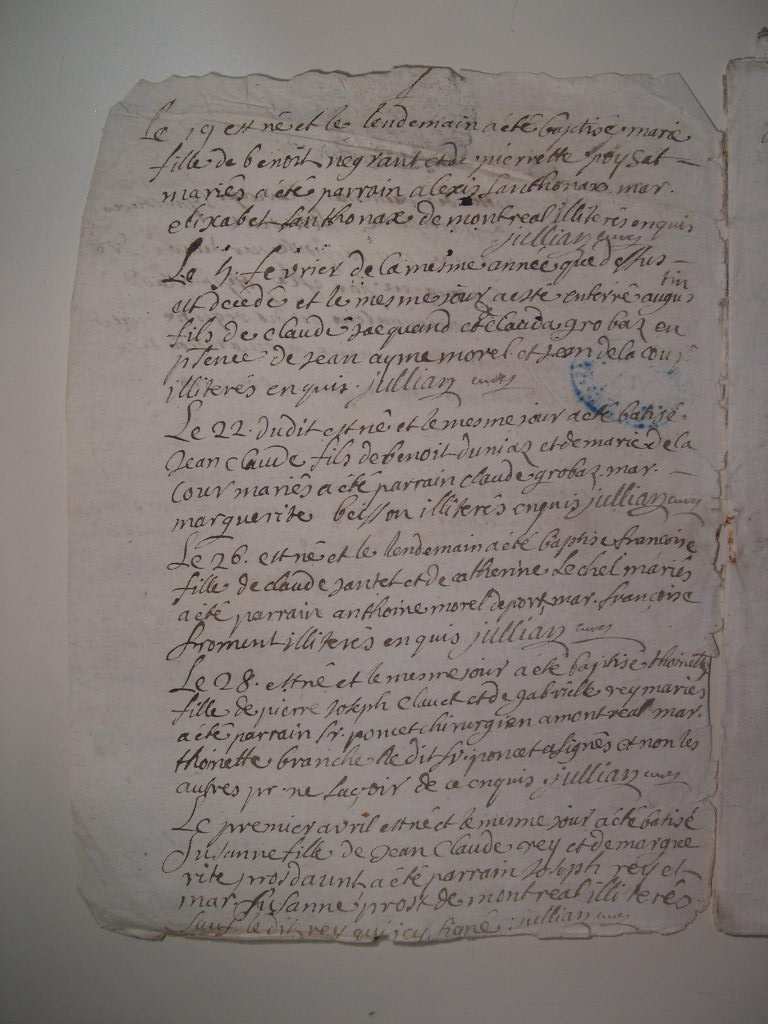 Le 19 est né et le lendemain a été baptisé marie
fille de benoit negrant et de pierrette poysat
mariés a été parrain alexis santhonax mar.
elixabet santhonax de montreal illiterés enquis
jullian curé
Le 4. fevrier de la mesme année que dessus
est decedé et le mesme jour a esté enterré augus
tin
fils de claude jacquand et clauda grobaz en
pnce de jean ayme morel et jean de la cour
illiterés enquis. jullian curé
Le 22. dudit est né et le mesme jour a été batisé
jean claude fils de benoit duniaz et de marie de la
cour mariés a été parrain claude grobaz mar.
marguerite beisson illiterés enquis jullian curé
Le 26. est né et le lendemain a été baptise francoise
fille de claude jantet et de catherine Lechel mariés
a été parrain anthoine morel de port mar. françoise
froment illiterés enquis jullian curé
Le 28. est né et le mesme jour a été baptisé thoinette
fille de pierre joseph clauet et de gabrielle rey mariés
a été parrain sr. poncet chirurgien a montreal mar.
thoinette branche le dit sr. poncet a signés et non les
autres pr. ne sacoir de ce enquis jullian curé
Le premier avril est né et le mesme jour a été batisé
susanne fille de jean claude rey et de margue
rite prosdaunt a été parrain joseph rey et
mar. susanne prost de montreal illiterés
sauf le dit rey qui icy signé. jullian curé